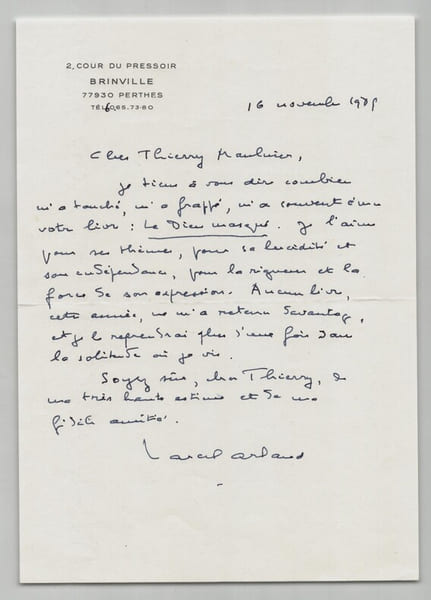 2, COUR DU PRESSOIR
BRINVILLE
77930 PERTHES
TÉL. 065.73-80
16 novembre 1985
Cher Thierry Maulnier,
je tiens à vous dire combien
m'a touché, m'a frappé, m'a souvent ému
votre livre : Le Dieu masqué. Je l'aime
pour ses thèmes, pour sa lucidité et
son indépendance, pour la rigueur et la
force de son expression. Aucun livre,
cette année, ne m'a retenu davantage,
et je le reprendrai plus d'une fois dans
la solitude où je vis.
Soyez sûr, cher Thierry, de
ma très haute estime et de ma
fidèle amitié.
Marcel Arland